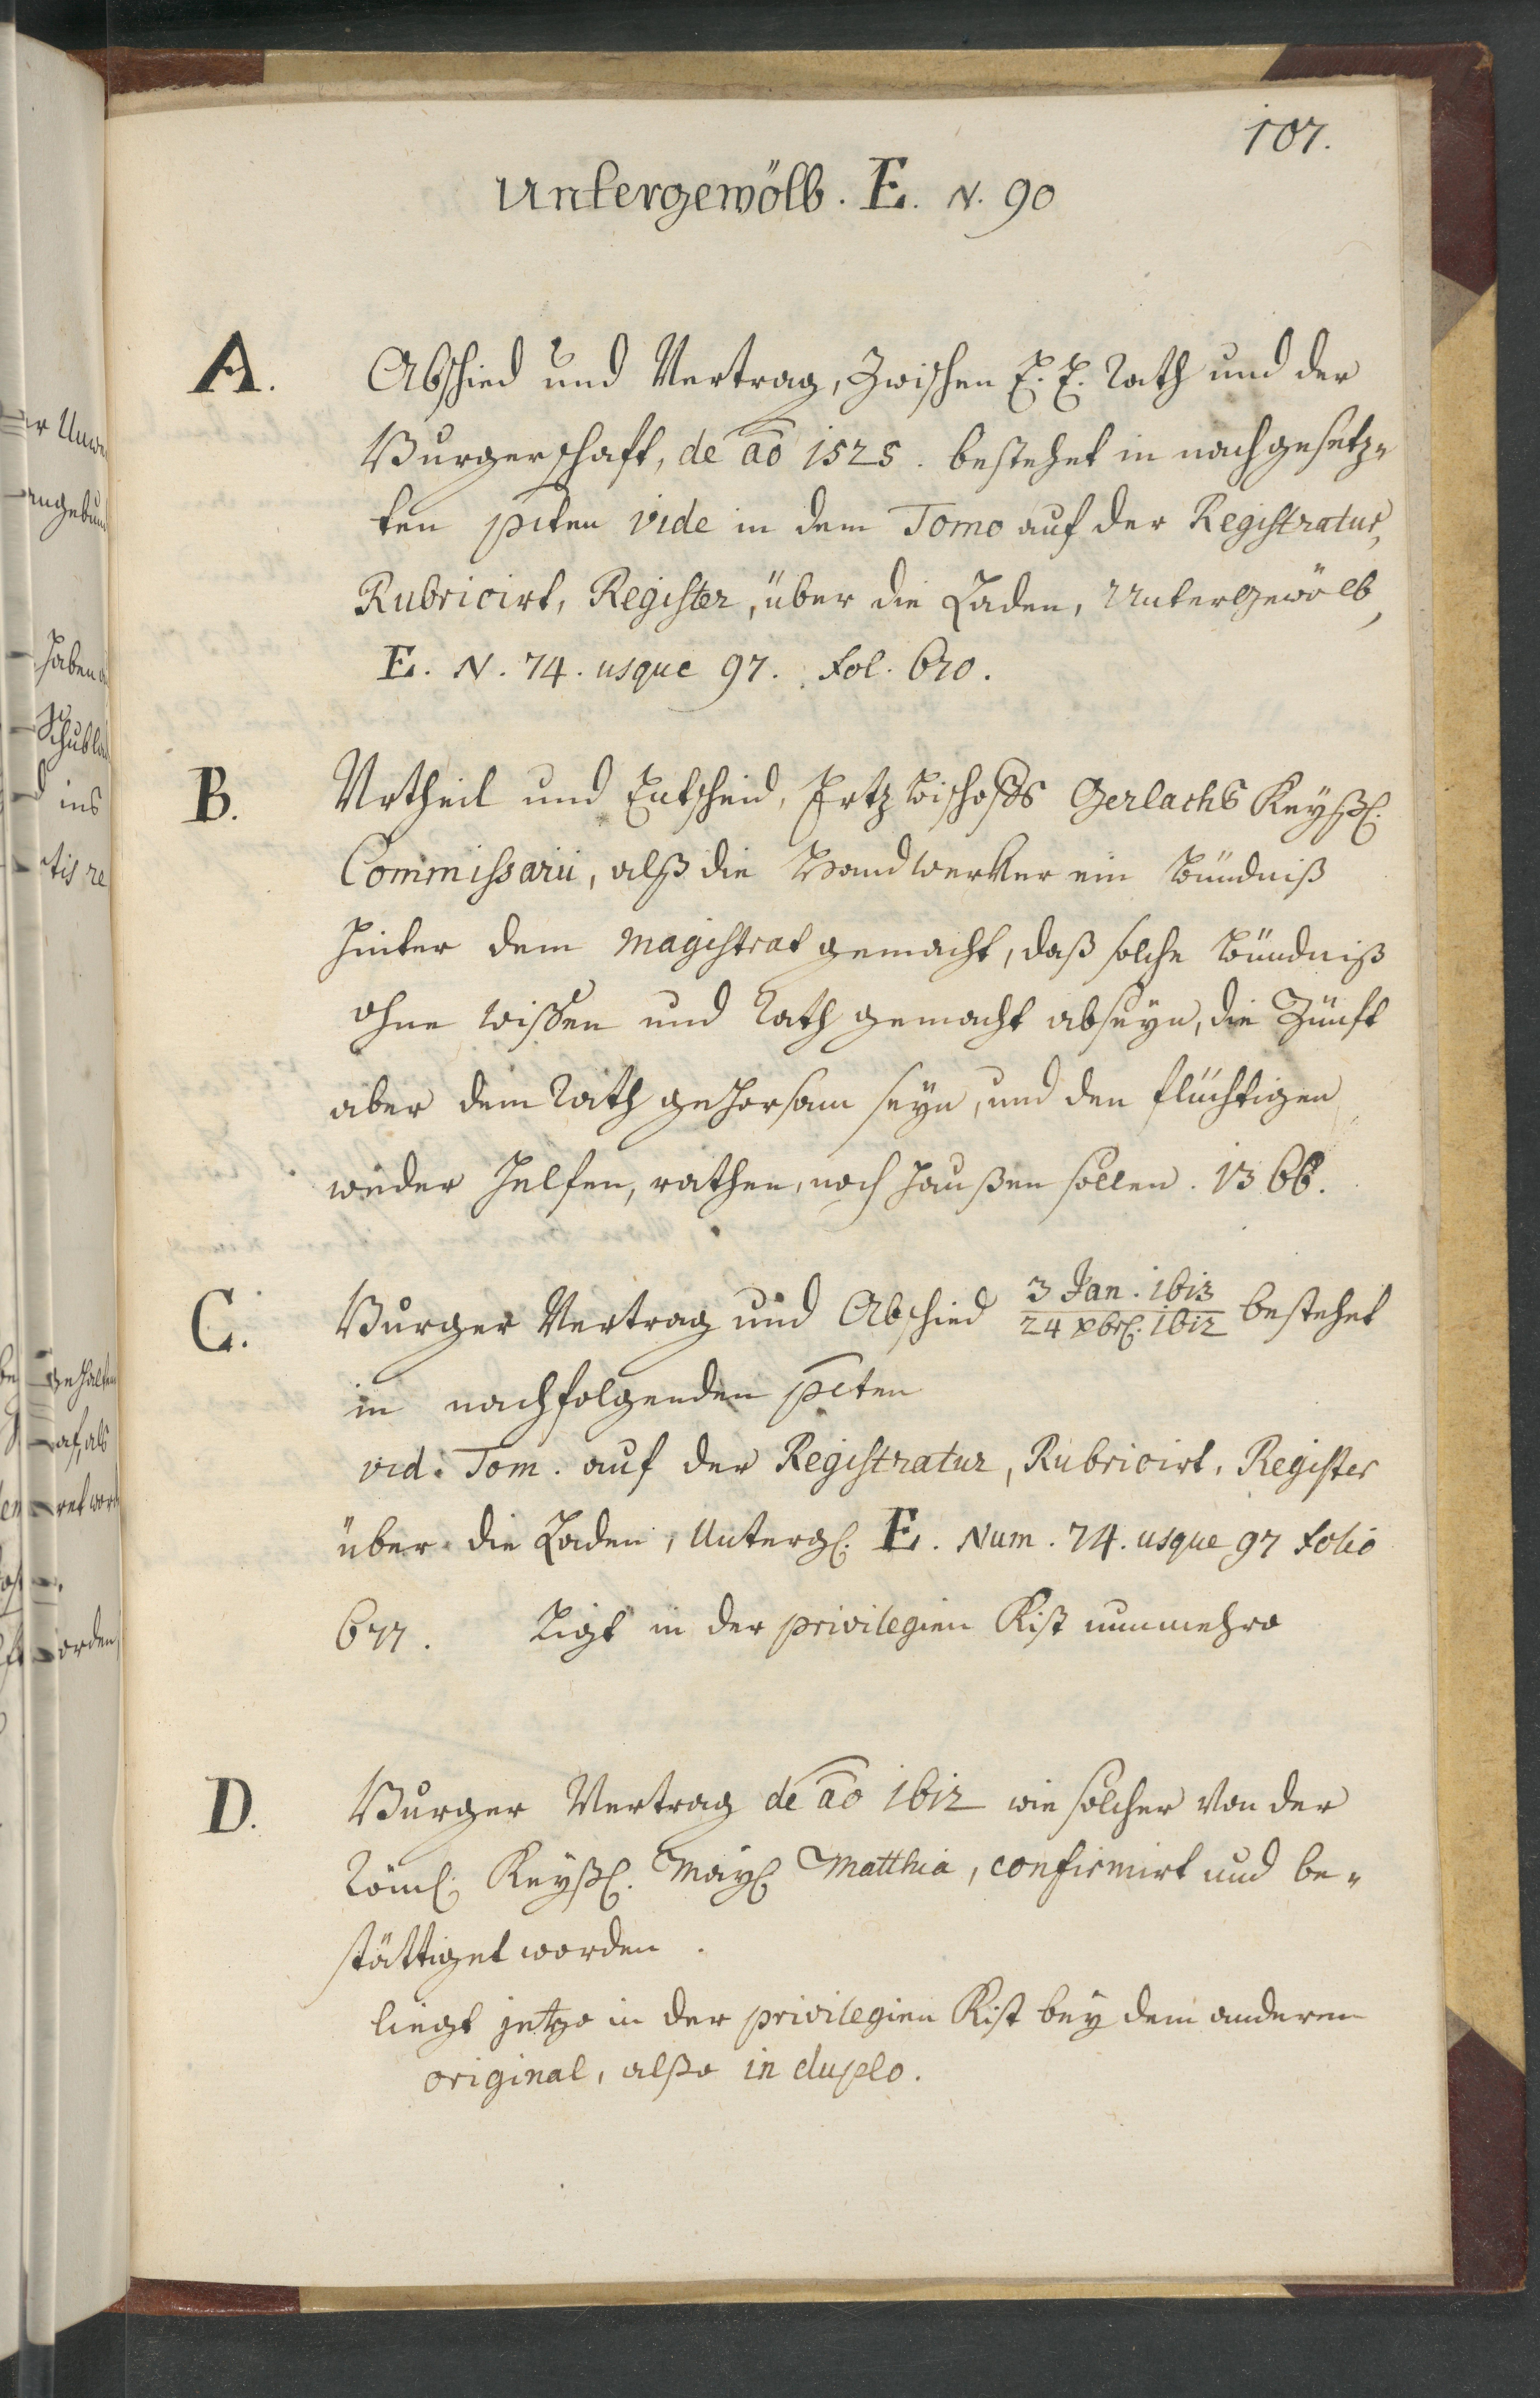 107.
Untergewölb. E. N. 90
A. Abschied und Vertrag, Zwischen E. E. Rath und der
Burgerschaft, de ao 1525. bestehet in nachgesetz„
ten pcten vide in dem Tomo auf der Registratur,
Rubricirt, Register, über die Laden, Untergewölb,
E. N. 74. usque 97. fol. 670.
B. Urtheil und Entscheid, Ertz Bischoffs Gerlachs Keyßl.
Commissarii, alß die Handwerker ein Bündniß
hinter dem Magistrat gemacht, daß solche Bündniß
ohne wissen und Rath gemacht abseyn, die Zünft
aber dem Rath gehorsam seyn, und den flüchtigen
weder helfen, rathen, noch haußen sollen. 1366.
C. Burger Vertrag und Abschied 3 Jan. 1613 / 24 xbrl. 1612 bestehet
in nachfolgenden pcten
vid. Tom. auf der Registratur, Rubricirt, Register
über die Laden, Untergl. E. Num. 74. usque 97 folio
677. Ligt in der privilegien Kist nunmehro
D. Burger Vertrag de ao 1612 wie solcher von der
Röml. Keyßl. Mayl Matthia, confirmirt und be„
stättiget worden.
liegt jetzo in der privilegien Kist bey dem anderen
original, alßo in duplo.